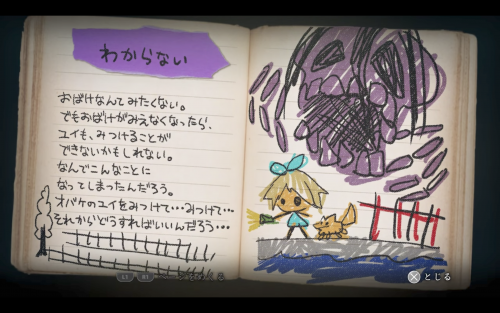 わからない
おばけなんてみたくない。
でもおばけがみえなくなったら、
ユイも、みつけることが
できないかもしれない。
なんでこんなことに
なってしまったんだろう。
オバケのユイをみつけて…みつけて…
それからどうすればいいんだろう…
とじる